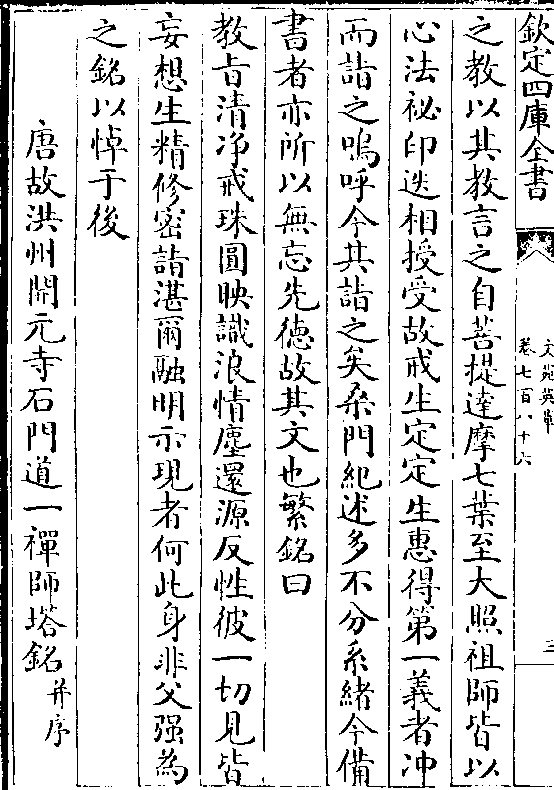 欽定四庫全書
文苑英華
卷七百八十六
三
之教以其教言之自菩提達摩七葉至大照祖師皆以
心法祕印迭相授受故戒生定定生惠得第一義者冲
而詣之嗚呼今其詣之矣桑門紀述多不分系緒今備
書者亦所以無忘先徳故其文也繁銘曰
教㫖清净戒珠圓映識浪情塵還源反性彼一切見皆
妄想生精修密詣湛爾融明示現者何此身非父强為
之銘以悼于後
唐故洪州開元寺石門道一禪師塔銘并序